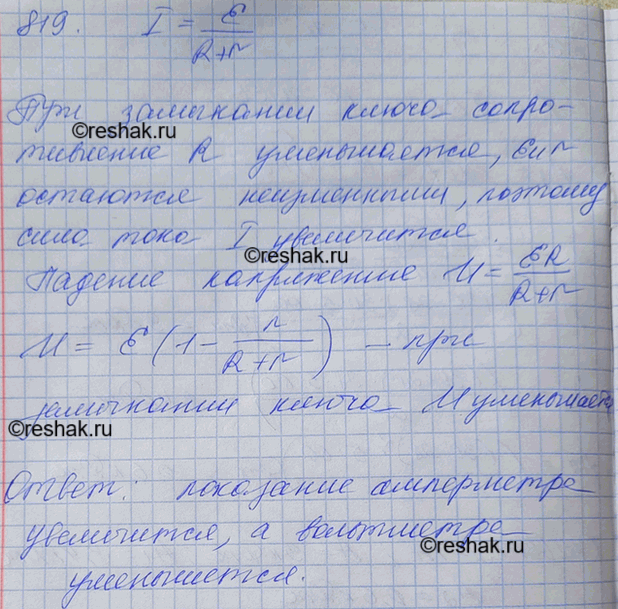 819. I = ℰ/(R+r)
При замыкании ключа сопро-
©reshak.ru
тивление R уменьшается, ℰ и r
остаются неизменными, поэтому
сила тока I увеличится.
©reshak.ru
Падение напряжение U = ℰR/(R+r)
U = ℰ(1 - r/(R+r)) - при
замыкании ключа U уменьшается
©reshak.ru
Ответ: показание амперметра
увеличится, а вольтметра
©reshak.ru
уменьшется.